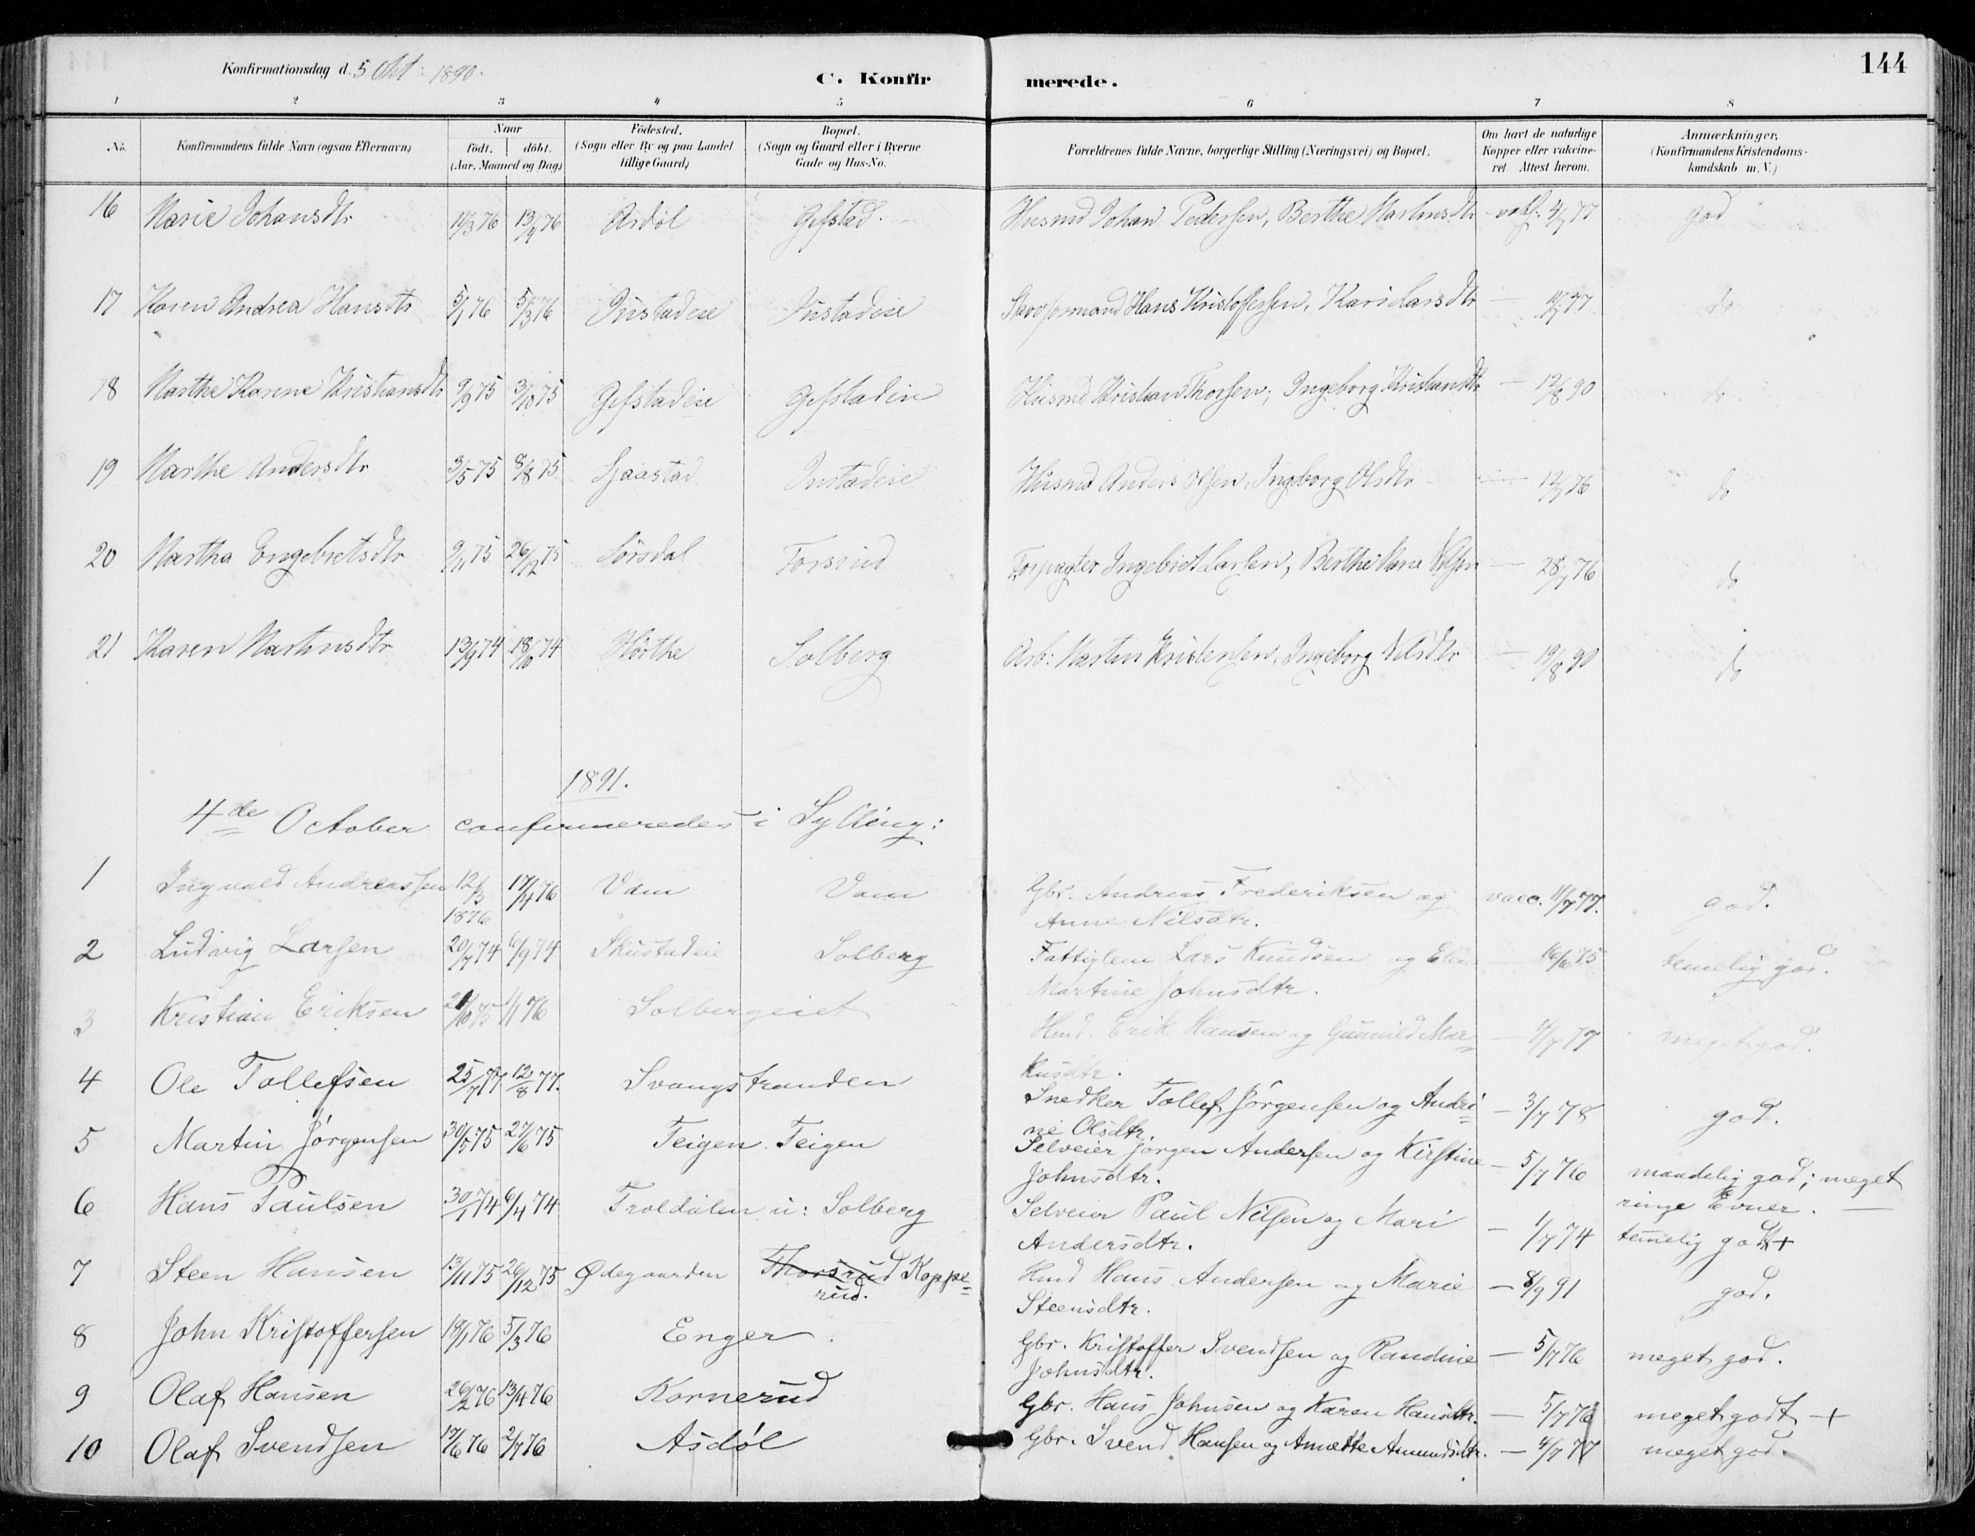 Konfirmationsdag d. 5 Okt 1890.
C. Konfirmerede.
144
1 2 3 4 5 6 7 8
No.
Konfirmandens fulde Navn (ogsaa Efternavn)
Naar
födt. döbt.
(Aar, Maaned og Dag)
Födested.
(Sogn eller By og paa Landet
tillige Gaard)
Bopæl.
(Sogn og Gaard eller i Byerne
Gade og Hus-No.
Forældrenes fulde Navne, borgerlige Stilling (Næringsvei) og Bopæl.
Om havt de naturlige
Kopper eller vakcine-
ret. Attest herom.
Anmærkninger,
(Konfirmandens Kristendoms-
kundskab m. V.)
16 Marie Johansdtr 11/3 76 13/4 76 Asdøl Gifstad. Husmd Johan Pedersen, Berthe Martinsdtr 4/7 77 god
17 Karen Andrea Hansdtr 5/1 76 5/3 76 Justadeie Justadeie Hans Kristoffersen, Kari Larsdtr — 11/7 77 do
18 Marthe Karine Kristiansdtr 9/9 75 3/10 75 Gifstadeie Gifstadeie Husmd Kristian Thorsen; Ingeborg Kristiansdtr — 12/8 90 do
19 Marthe Andersdtr 3/5 75 8/8 75 Sjaastad Justadeie Husmd Anders Olsen, Ingeborg Olsdtr — 12/7 76 do
20 Martha Engebretsdtr 9/11 75 26/12 75 Sørsdal Forsrud Forpagter Ingebret Larsen, Berthe Marie Nilsen — 28/7 76 do
21 Karen Martinsdtr 13/9 74 18/10 74 Hørthe Solberg Arb: Martin Kristensen, Ingeborg Nilsdtr — 19/8 90 do
1891.
4de October confirmeredes i Sylling:
1 Ingvald Andreassen 12/3 1876 17/4 76 Vam Vam Gbr. Andreas Frederiksen og vacc. 11/7 77. god.
Anne Nilsdtr.
2 Ludvig Larsen 20/7 74 6/9 74 Skustadeie Solberg Fattiglem Lars Knudsen og Elen — 16/6 75 temelig god.
Martine Johnsdtr.
3 Kristian Eriksen 21/10 75 1/1 76 Solbergeiet Hmd. Erik Hansen og Gunnild Mar- — 4/7 77 meget god.
kusdtr.
4 Ole Tollefsen 25/7 77. 12/8 77. Svangstranden Snedker Tollef Jørgensen og Andri- — 3/7 78 god.
ne Olsdtr.
5 Martin Jørgensen 30/5 75 27/6 75 Teigen. Teigen Selveier Jørgen Andersen og Kirstine — 5/7 76 maadelig god; meget
Johnsdtr. ringe Evner. —
6 Hans Paulsen 30/1 74 6/4 74 Troldalen u: Solberg Selveier Paul Nilsen og Mari — 1/7 74 temelig god +
Andersdtr.
7 Steen Hansen 13/11 75 26/12 75 Ødegaarden Thorsrud Koppe- Hmd Hans Andersen og Marie — 8/9 91 god.
rud. Steensdtr.
8 John Kristoffersen 18/1 76 5/3 76 Enger. Gbr. Kristoffer Svendsen og Randine — 5/7 76 meget god.
Johnsdtr.
9 Olaf Hansen 26/2 76 13/4 76 Kornerud Gbr. Hans Johnsen og Karen Hansdtr. — 5/7 76 meget godt +
10 Olaf Svendsen 17/6 76 2/7 76 Asdøl Gbr. Svend Hansen og Anette Amundsdtr. — 4/7 77 meget god.